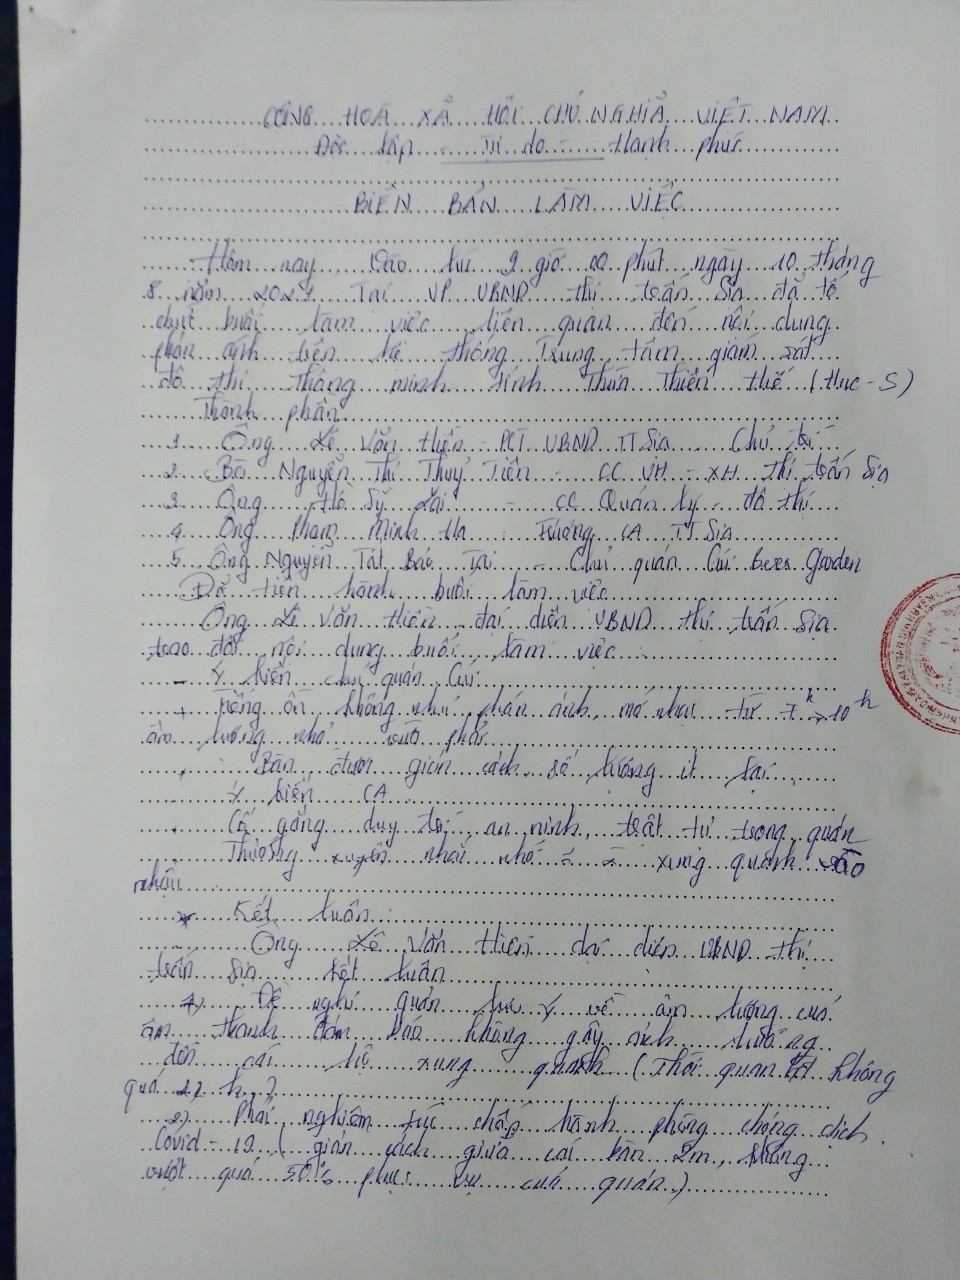 CỘNG HOÀ XÃ HỘI CHỦ NGHĨA VIỆT NAM
Độc lập - Tự do - Hạnh phúc
BIÊN BẢN LÀM VIỆC
Hôm nay, Vào lúc 9 giờ 00 phút ngày 10 tháng
8 năm 2021 Tại VP UBND thị trấn Sịa đã tổ
chức buổi làm việc liên quan đến nội dung
phản ánh trên hệ thống Trung tâm giám sát
đô thị thông minh tỉnh Thừa Thiên Huế (Hue-S)
Thành phần
1. Ông Lê Văn Hiền - PCT UBND TT Sịa Chủ trì
2. Bà Nguyễn Thị Thuỷ Tiên - CC VH - XH thị trấn Sịa
3. Ông Hồ Sỹ - CC Quản lý - đô thị
4. Ông Phạm Minh Hà Trưởng CA TT Sịa
5. Ông Nguyễn Tất Bảo Tài - Chủ quán Cúi Beer Garden
Đã tiến hành buổi làm việc
Ông Lê Văn Hiền đại diện UBND thị trấn Sịa
trao đổi nội dung buổi làm việc
- Ý kiến chủ quán Cúi
+ Tiếng ồn không như phản ánh, mở nhạc từ 7h → 10h
âm lượng nhỏ vừa phải
+ Bàn được giãn cách, số lượng ít lại
- Ý kiến CA
Cố gắng duy trì an ninh, trật tự trong quán
Thường xuyên nhắc nhở xung quanh vào
nhậu
* Kết luận
Ông Lê Văn Hiền đại diện UBND thị
trấn Sịa kết luận
1) Đề nghị quán lưu ý về âm lượng của
âm thanh đảm bảo không gây ảnh hưởng
đến các hộ xung quanh (Thời gian không
quá 22 h)
2) Phải nghiêm túc chấp hành phòng chống dịch
Covid-19 (giãn cách giữa các bàn 2m, không
vượt quá 50% phục vụ của quán)